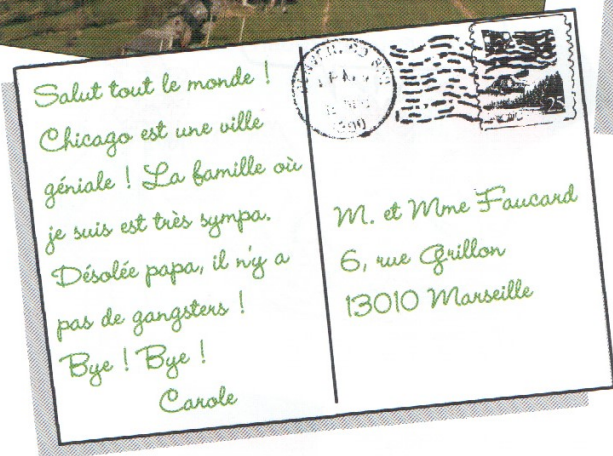 Salut tout le monde !
Chicago est une ville
géniale ! La famille où
je suis est très sympa.
Désolée papa, il n'y a
pas de gangsters !
Bye ! Bye !
Carole
25
M. et Mme Faucard
6, rue Grillon
13010 Marseille